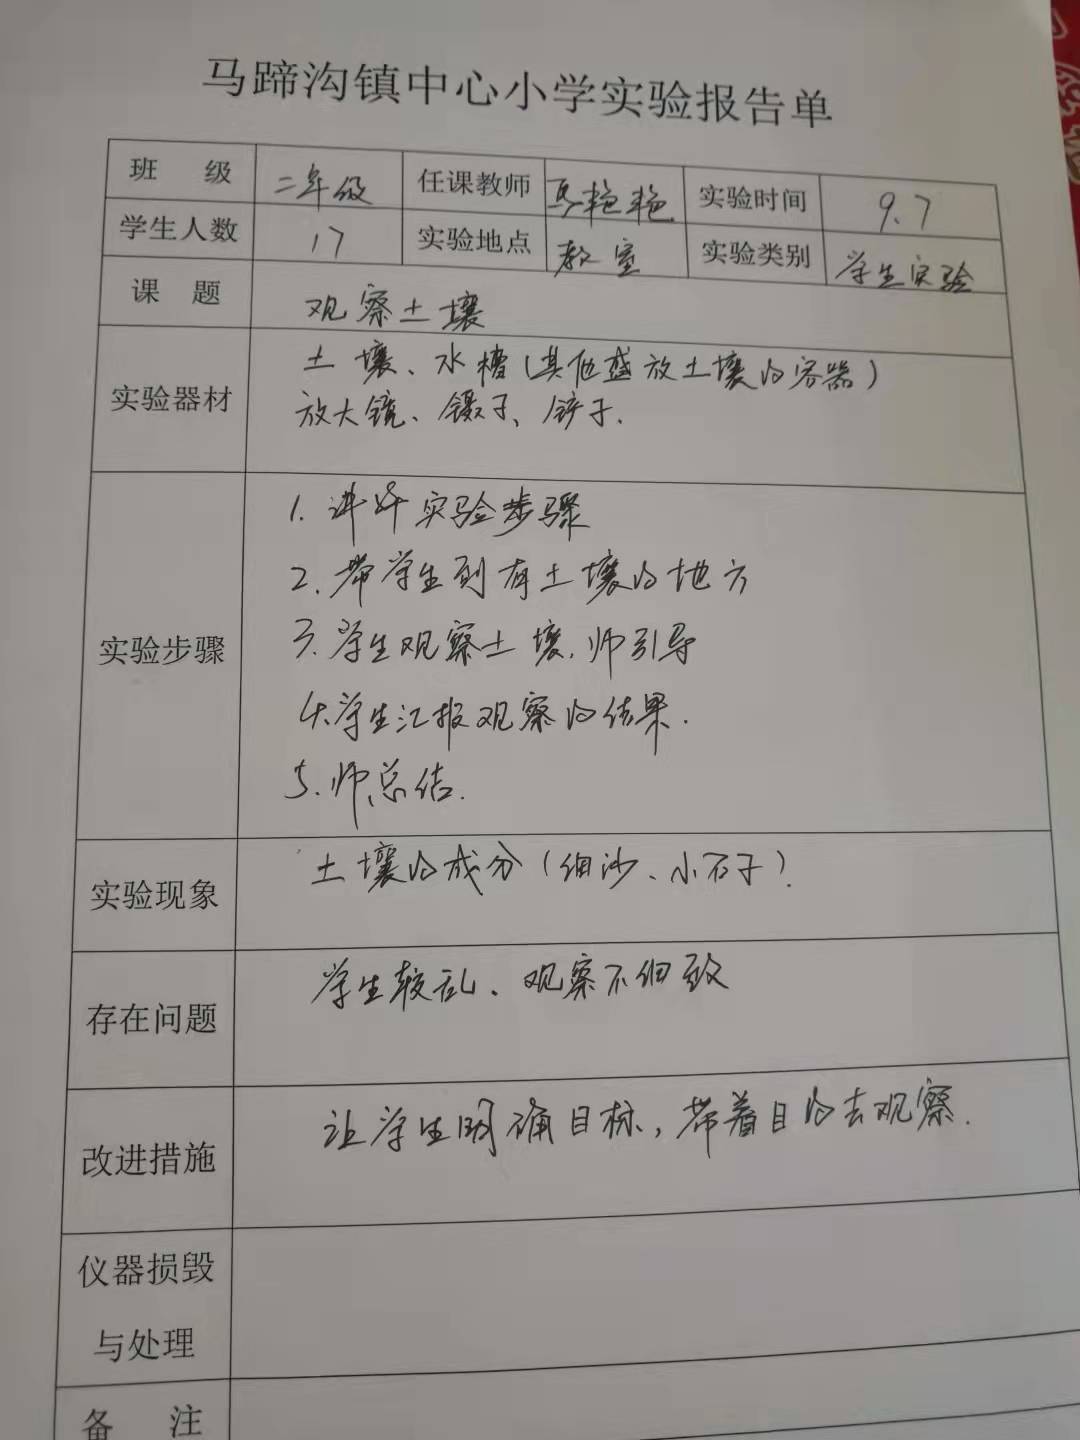 马蹄沟镇中心小学实验报告单
班 级 二年级 任课教师 马艳艳 实验时间 9.7
学生人数 17 实验地点 教室 实验类别 学生实验
课 题 观察土壤
实验器材 土壤、水槽(其他盛放土壤的容器)
放大镜、镊子、铲子.
实验步骤
1. 讲好实验步骤
2. 带学生到有土壤的地方
3. 学生观察土壤.师引导
4.学生汇报观察的结果.
5.师总结.
实验现象 土壤的成分(细沙、小石子).
存在问题 学生较乱、观察不细致
改进措施 让学生明确目标,带着目的去观察.
仪器损毁
与处理
备 注